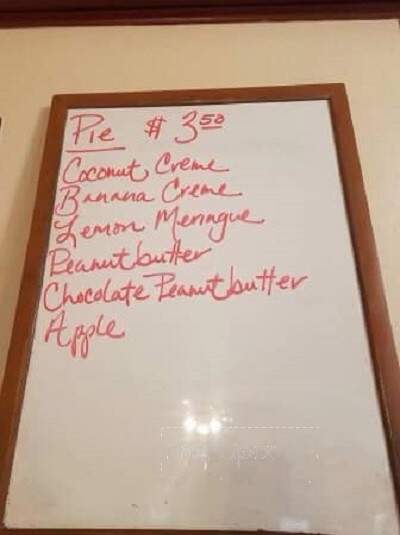 Pie $ 3.50
Coconut Creme
Banana Creme
Lemon Meringue
Peanutbutter
Chocolate Peanutbutter
Apple